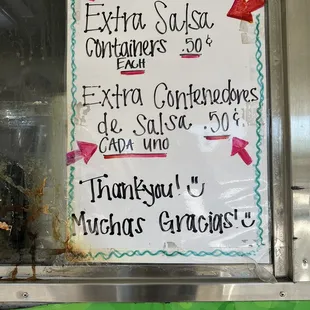 Extra Salsa
Containers .50¢
EACH
Extra Contenedores
de Salsa .50¢
CADA UNO
Thankyou!
Muchas Gracias!